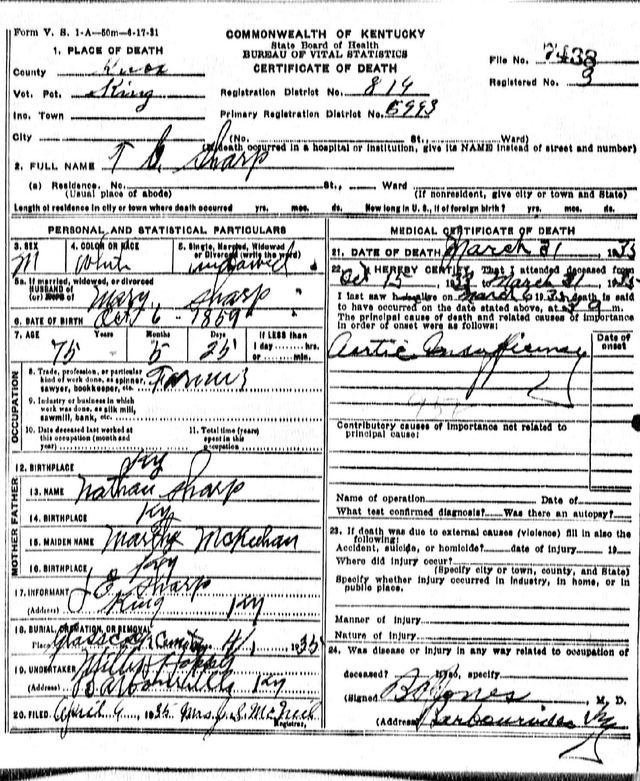 Form V. S. 1-A—50m—6-17-31
COMMONWEALTH OF KENTUCKY
State Board of Health
BUREAU OF VITAL STATISTICS
CERTIFICATE OF DEATH
File No. 7438
Registered No. 9
1. PLACE OF DEATH
County Knox
Vot. Pct. King
Inc. Town
City
Registration District No. 819
Primary Registration District No. 5993
(No. St., Ward)
(If death occurred in a hospital or institution, give its NAME instead of street and number)
2. FULL NAME T Sharp
(a) Residence. No. St., Ward
(Usual place of abode) (If nonresident, give city or town and State)
Length of residence in city or town where death occurred yrs. mos. ds. How long in U. S., if of foreign birth? yrs. mos. ds.
PERSONAL AND STATISTICAL PARTICULARS
3. SEX M
4. COLOR OR RACE White
5. Single, Married, Widowed or Divorced (write the word) widowed
5a. If married, widowed, or divorced
HUSBAND of
(or) WIFE of Mary Sharp
6. DATE OF BIRTH Oct 6 - 1859
7. AGE 75 Years 5 Months 25 Days If LESS than
1 day hrs.
or min.
OCCUPATION
8. Trade, profession, or particular
kind of work done, as spinner,
sawyer, bookkeeper, etc. Farmer
9. Industry or business in which
work was done, as silk mill,
sawmill, bank, etc.
10. Date deceased last worked at
this occupation (month and
year)
11. Total time (years)
spent in this
occupation
12. BIRTHPLACE Ky
MOTHER FATHER
13. NAME Nathan Sharp
14. BIRTHPLACE Ky
15. MAIDEN NAME McKeehan
16. BIRTHPLACE Ky
17. INFORMANT Sharp
(Address) King Ky
18. BURIAL, CREMATION, OR REMOVAL
Place Cemetry 4/1, 1935
19. UNDERTAKER
(Address) Barbourville Ky
20. FILED April 1935 Mrs. J. S.
Registrar.
MEDICAL CERTIFICATE OF DEATH
21. DATE OF DEATH March 31 1935
22. I HEREBY CERTIFY, That I attended deceased from
Oct 15 1934 to March 31, 1935
I last saw h alive on March 6 1935 death is said
to have occurred on the date stated above, at 9 m.
The principal cause of death and related causes of importance
in order of onset were as follows:
Date of
onset
Aortic Insufficiency
Contributory causes of importance not related to
principal cause:
Name of operation Date of
What test confirmed diagnosis? Was there an autopsy?
23. If death was due to external causes (violence) fill in also the
following:
Accident, suicide, or homicide? date of injury 19
Where did injury occur?
(Specify city or town, county, and State)
Specify whether injury occurred in industry, in home, or in
public place.
Manner of injury
Nature of injury
24. Was disease or injury in any way related to occupation of
deceased? If so, specify
(Signed) Jones M. D.
(Address) Barbourville Ky